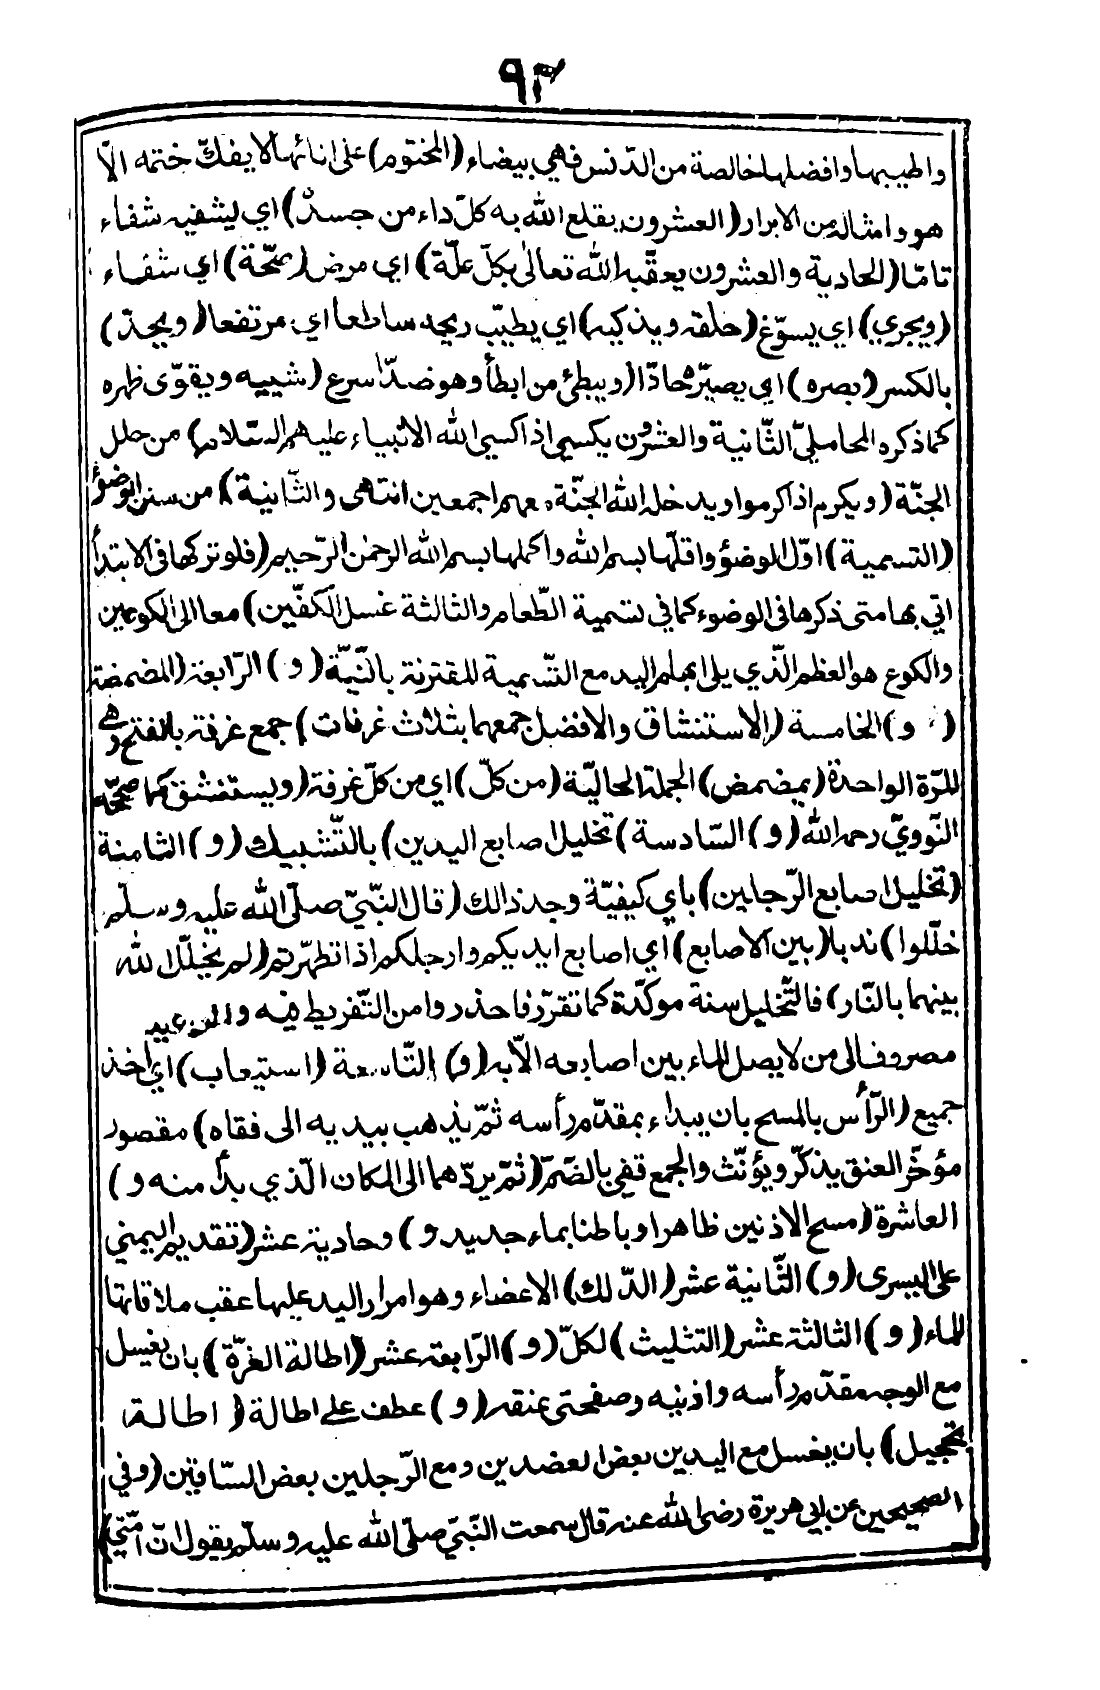 ٩٣
واطيبها وافضلها خالصة من الدّنس فهي بيضاء (المختوم) على انائها لا يفكّ ختمه الّا
هو وامثاله من الابرار (العشرون يقلع الله به كلّ داء من جسده) اي ليشفيه شفاء
تامّا (الحادية والعشرون يعقّبه الله تعالى بكلّ علّة) اي مرض (صحّة) اي شفاء
(ويجري) اي يسوّغ (حلقه ويذكيه) اي يطيّب ريحه ساطعا اي مرتفعا (ويحدّ)
بالكسر (بصره) اي يصيّره حادّا (ويبطئ من ابطأ وهو ضدّ اسرع (شيبه ويقوّى ظهره
كما ذكره المحامليّ الثّانية والعشرون يكسي اذا كسي الله الانبياء عليهم السّلام) من حلل
الجنّة (ويكرم اذا كرموا ويدخله الله الجنّة معهم اجمعين انتهى والثّانية) من سنن الوضوء
(التسمية) اوّل الوضوء واقلّها بسم الله واكملها بسم الله الرحمٰن الرّحيم (فلو تركها فى الابتدأ
اتي بها متى ذكرها فى الوضوء كما في تسمية الطّعام والثالثة غسل الكفّين) معا الى الكوعين
والكوع هو العظم الّذي يلي ابهام اليد مع التّسمية المقترنة بالنّيّة (و) الرّابعة (المضمضة
( و) الخامسة (الاستنشاق والافضل جمعهما بثلاث غرفات) جمع غرفة بالفتح وهي
للمرّة الواحدة (يمضمض) الجملة الحاليّة (من كلّ) اي من كلّ غرفة (ويستنشق كما صحّحه
النّوويّ رحمه الله (و) السّادسة) تخليل اصابع اليدين) بالتّشبيك (و) الثامنة
(تخليل اصابع الرّجلين) باي كيفيّة وجد ذالك (قال النّبيّ صلّى الله عليه وسلّم
خلّلوا) ندبا (بين الاصابع) اي اصابع ايديكم وارجلكم اذا تطهّرتم (لم يخلّل الله
بينهما بالنّار) فالتّخليل سنة موكّدة كما تقرّر فاحذروا من التّفريط فيه
مصروف الى من لا يصل الماء بين اصابعه الّا به (و) التّاسعة (استيعاب) اي اخذ
جميع (الرّأس بالمسح بان يبداء بمقدّم رأسه ثمّ يذهب بيديه الى فقاه) مقصور
مؤخّر العنق يذكّر ويؤنّث والجمع قفي بالضّمّ (ثمّ يردّهما الى المكان الّذي بدأ منه و)
العاشرة (مسح الاذنين ظاهرا وباطنا بماء جديد و) وحادية عشر (تقديم اليمني
على اليسرى (و) الثّانية عشر (الدّلك) الاعضاء وهو امرار اليد عليها عقب ملاقاتها
الماء (و) الثالثة عشر (التثليث) لكلّ (و) الرّابعة عشر (اطالة الغرّة) بان يغسل
مع الوجه مقدّم رأسه واذنيه وصفحتي عنقه (و) عطف على اطالة ( اطالة)
تحجيل) بان يغسل مع اليدين بعض العضدين ومع الرّجلين بعض السّاقين (وفي
الصحيحين عن ابي هريرة رضى الله عنه قال سمعت النّبيّ صلّى الله عليه وسلّم يقول انّ امّتي)